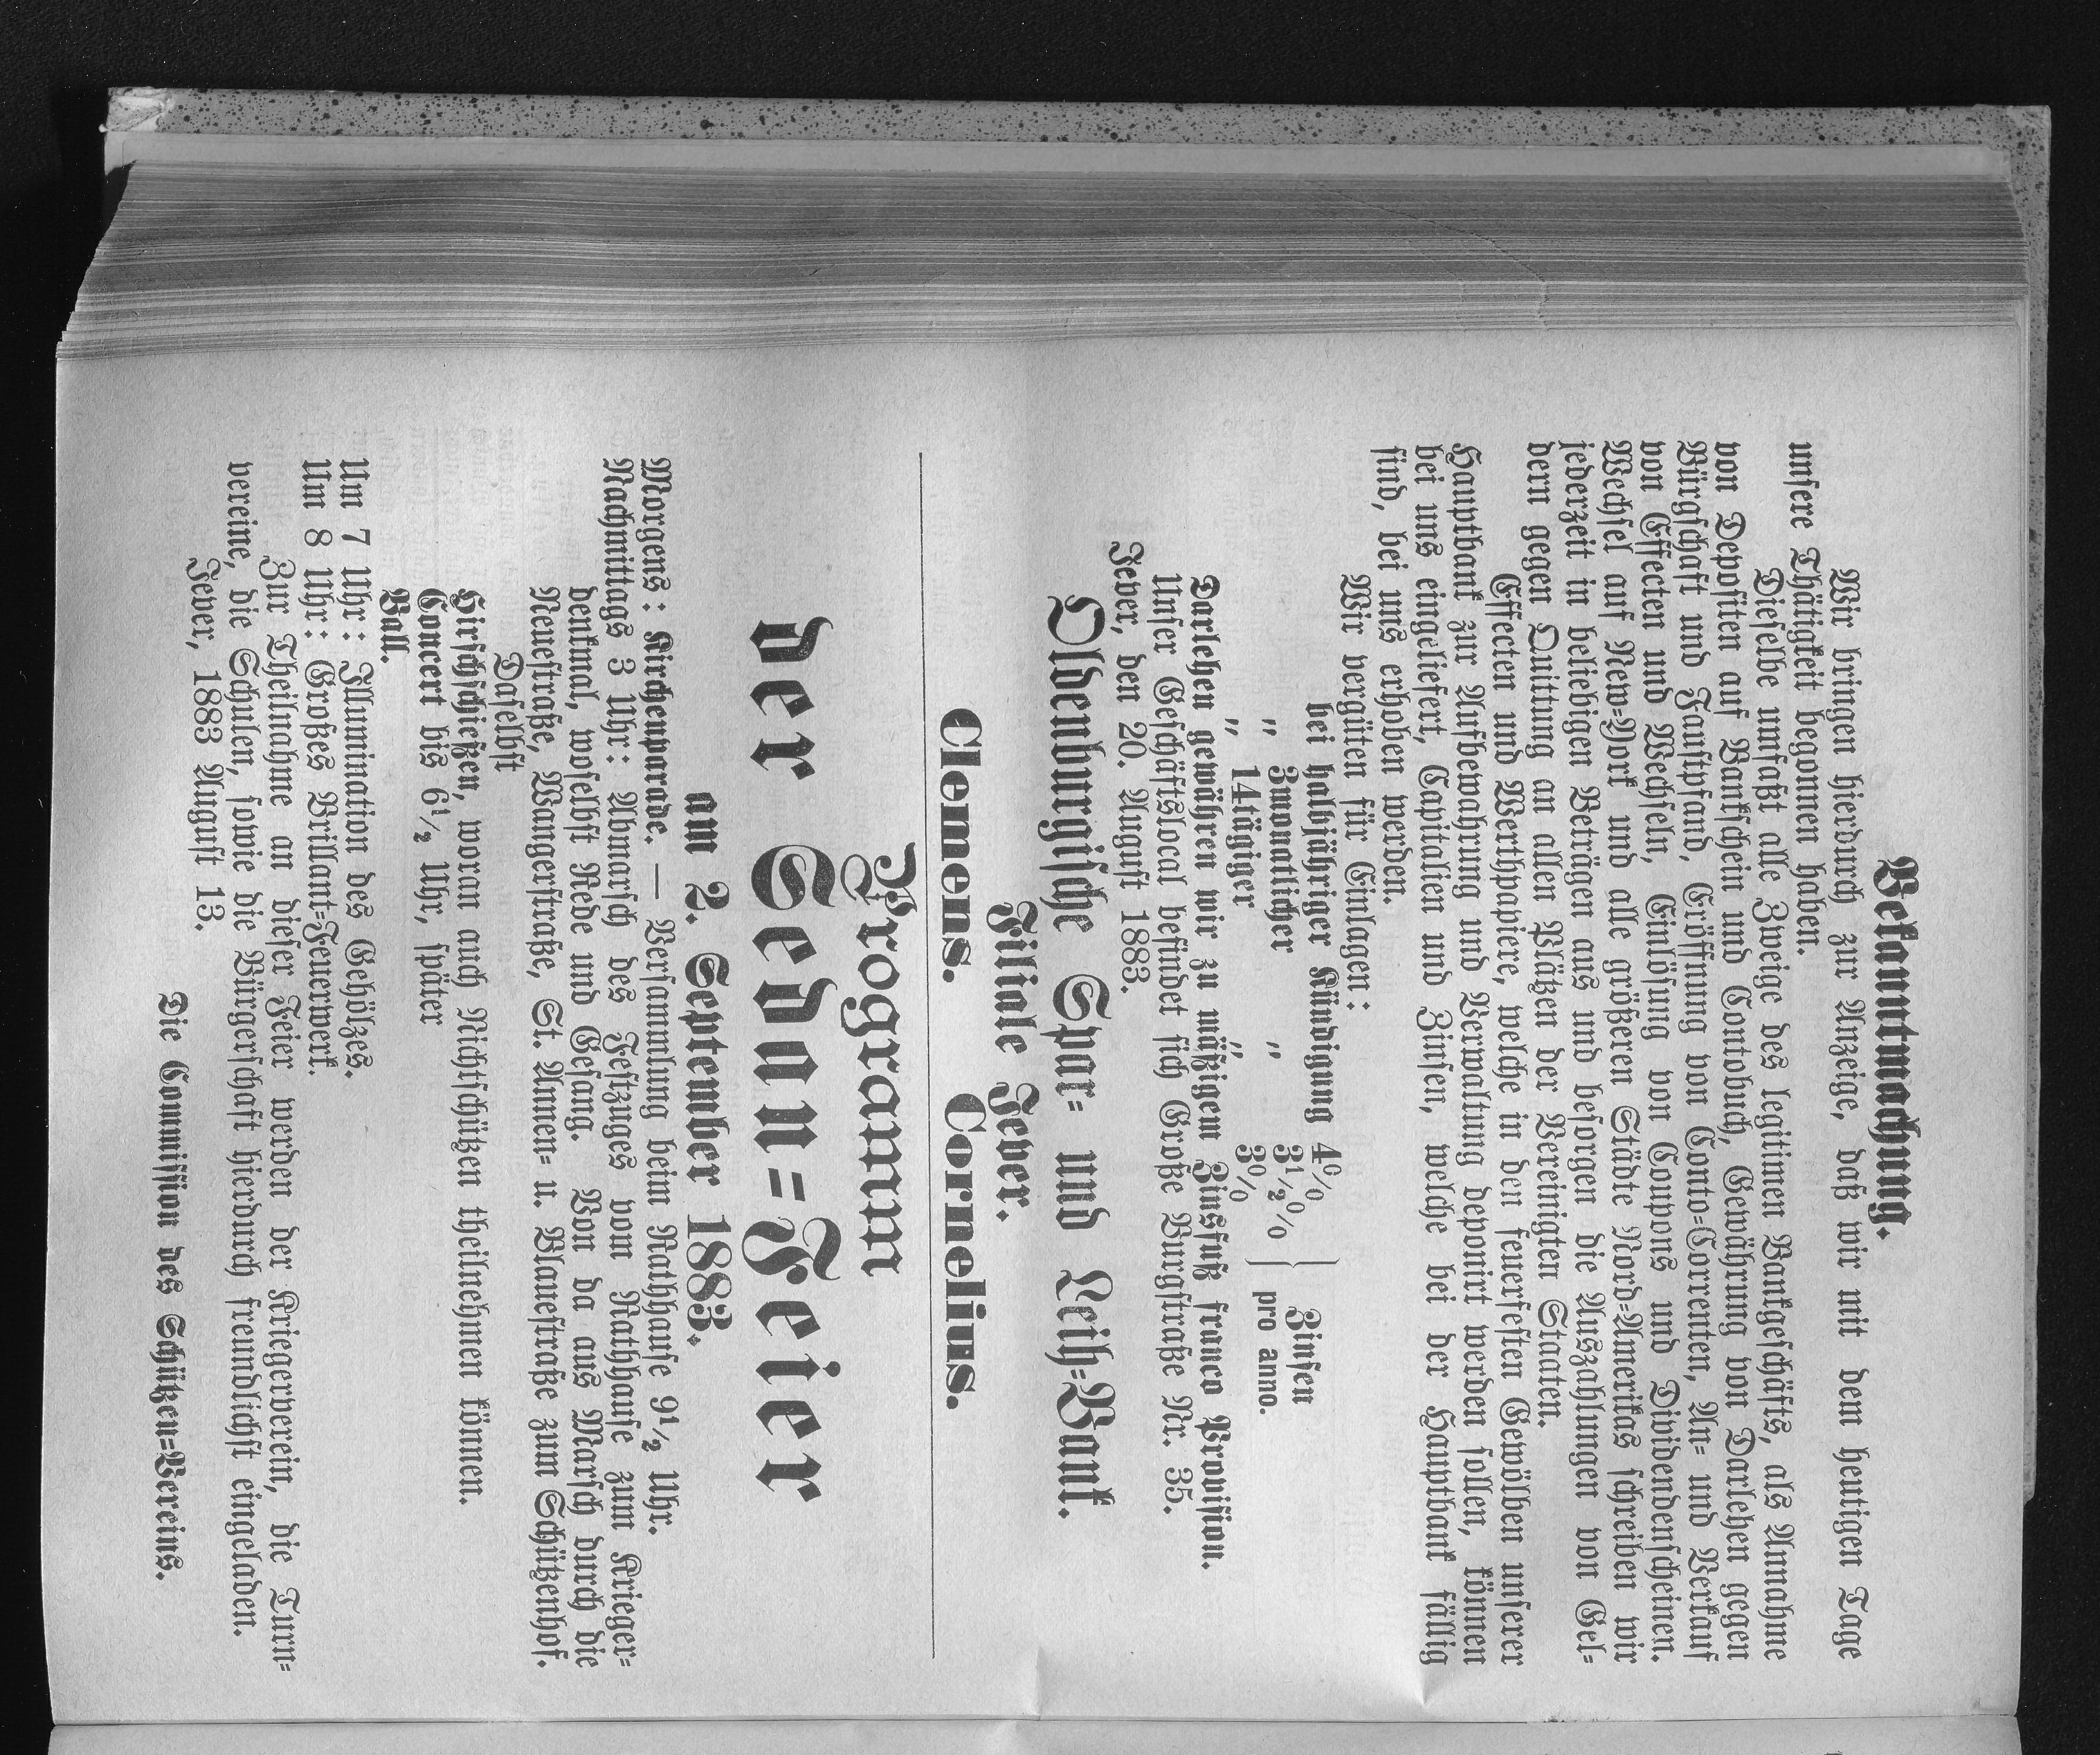 Bekanntmachung.
Wir bringen hierdurch zur Anzeige, daß wir mit dem heutigen Tage
unsere Thätigkeit begonnen haben.
Dieselbe umfaßt alle Zweige des legitimen Bankgeschäfts, als Annahme
von Depositen auf Bankschein und Contobuch, Gewährung von Darlehen gegen
Bürgschaft und Faustpfand, Eröffnung von Conto-Correnten, An- und Verkauf
von Effecten und Wechseln, Einlösung von Coupons und Dividendenscheinen.
Wechsel auf New-York und alle größeren Städte Nord-Amerikas schreiben wir
jederzeit in beliebigen Beträgen aus und besorgen die Auszahlungen von Gel-
dern gegen Quittung an allen Plätzen der Vereinigten Staaten.
Effecten und Werthpapiere, welche in den feuerfesten Gewölben unserer
Hauptbank zur Aufbewahrung und Verwaltung deponirt werden sollen, können
bei uns eingeliefert, Capitalien und Zinsen, welche bei der Hauptbank fällig
sind, bei uns erhoben werden.
Wir vergüten für Einlagen:
bei halbjähriger Kündigung 4% } Zinsen
„ 3monatlicher „ 3½% } pro anno.
„ 14tägiger „ 3% }
Darlehen gewähren wir zu mäßigem Zinsfuß franco Provision.
Unser Geschäftslocal befindet sich Große Burgstraße Nr. 35.
Jever, den 20. August 1883.
Oldenburgische Spar- und Leih-Bank.
Filiale Jever.
Clemens. Cornelius.
Programm
der Sedan-Feier
am 2. September 1883.
Morgens: Kirchenparade. — Versammlung beim Rathhause 9½ Uhr.
Nachmittags 3 Uhr: Abmarsch des Festzuges vom Rathhause zum Krieger-
denkmal, woselbst Rede und Gesang. Von da aus Marsch durch die
Neuestraße, Wangerstraße, St. Annen- u. Blauestraße zum Schützenhof.
Daselbst
Hirschschießen, woran auch Nichtschützen theilnehmen können.
Concert bis 6½ Uhr, später
Ball.
Um 7 Uhr: Illumination des Gehölzes.
Um 8 Uhr: Großes Brillant-Feuerwerk.
Zur Theilnahme an dieser Feier werden der Kriegerverein, die Turn-
vereine, die Schulen, sowie die Bürgerschaft hierdurch freundlichst eingeladen.
Jever, 1883 August 13.
Die Commission des Schützen-Vereins.